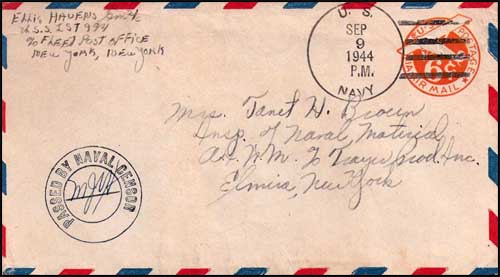 Ellis Havens Smith
U.S.S. LST 994
% Fleet Post Office
New York, New York
U. S.
SEP
9
1944
P.M.
NAVY
U.S. POSTAGE
6¢
VIA AIR MAIL
Mrs. Janet H. Brown
Insp. of Naval Material
% Thayer Prod. Inc.
Elmira, New York
PASSED BY NAVAL CENSOR